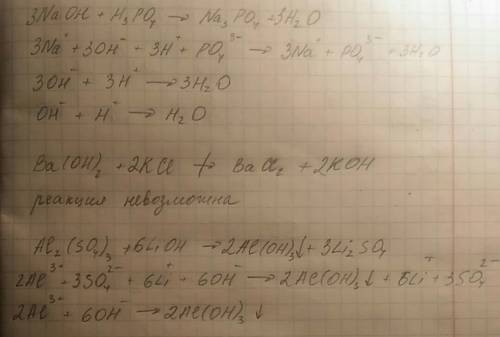 3NaOH + H₃PO₄ → Na₃PO₄ + 3H₂O
3Na⁺ + 3OH⁻ + 3H⁺ + PO₄³⁻ → 3Na⁺ + PO₄³⁻ + 3H₂O
3OH⁻ + 3H⁺ → 3H₂O
OH⁻ + H⁺ → H₂O
Ba(OH)₂ + 2KCl ↛ BaCl₂ + 2KOH
реакция невозможна
Al₂(SO₄)₃ + 6LiOH → 2Al(OH)₃↓ + 3Li₂SO₄
2Al³⁺ + 3SO₄²⁻ + 6Li⁺ + 6OH⁻ → 2Al(OH)₃↓ + 6Li⁺ + 3SO₄²⁻
2Al³⁺ + 6OH⁻ → 2Al(OH)₃↓